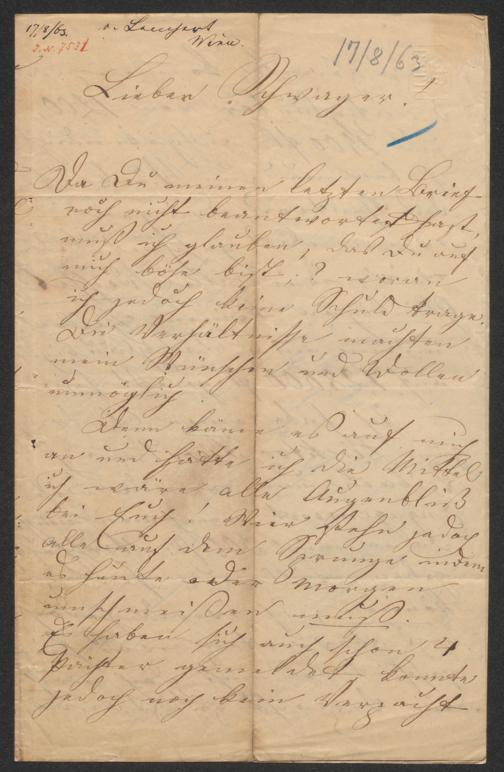 17/8/63. v. Lampert
Wien.
J. N. 7531
17/8/63
Lieber Schwager!
Da Du meinen letzten Brief
noch nicht beantwortet hast,
muß ich glauben, das Du auf
mich böse bist; ? woran
ich jedoch keine Schuld trage.
Die Verhältnisse machten
mein Wünschen und Wollen
unmöglich.
Denn käme es auf mich
an und hätte ich die Mittel
ich wäre alle Augenblick
bei Euch! Wir stehn jedoch
alle auf dem Sprunge indem
es heute oder Morgen
umschmeißen muß.
Es haben sich auch schon 4
Pächter gemeldet konnte
jedoch noch kein Verpacht